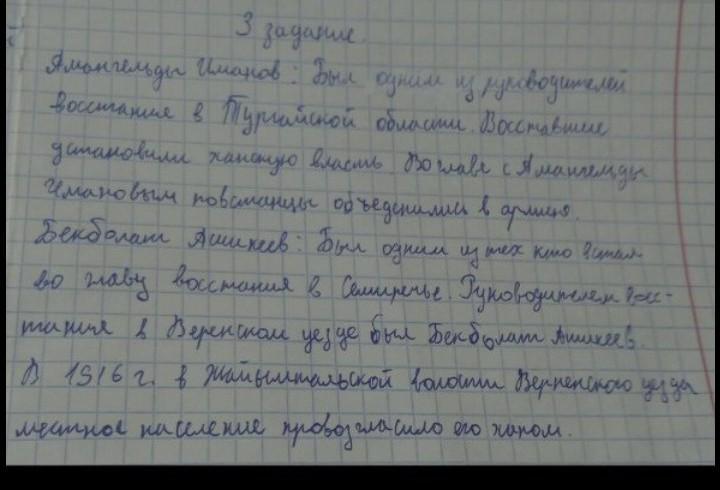 3 задание.
Амангельды Иманов: Был одним из руководителей
восстания в Тургайской области. Восставшие
установили ханскую власть. Во главе с Амангельды
Имановым повстанцы объеденились в армию.
Бекболат Ашикеев: Был одним из тех кто встал
во главу восстания в Семиречье. Руководителем восс-
тания в Веренском уезде был Бекболат Ашикеев.
В 1916 г. в Жайымтальской волости Верненского уезда
местное население провозгласило его ханом.